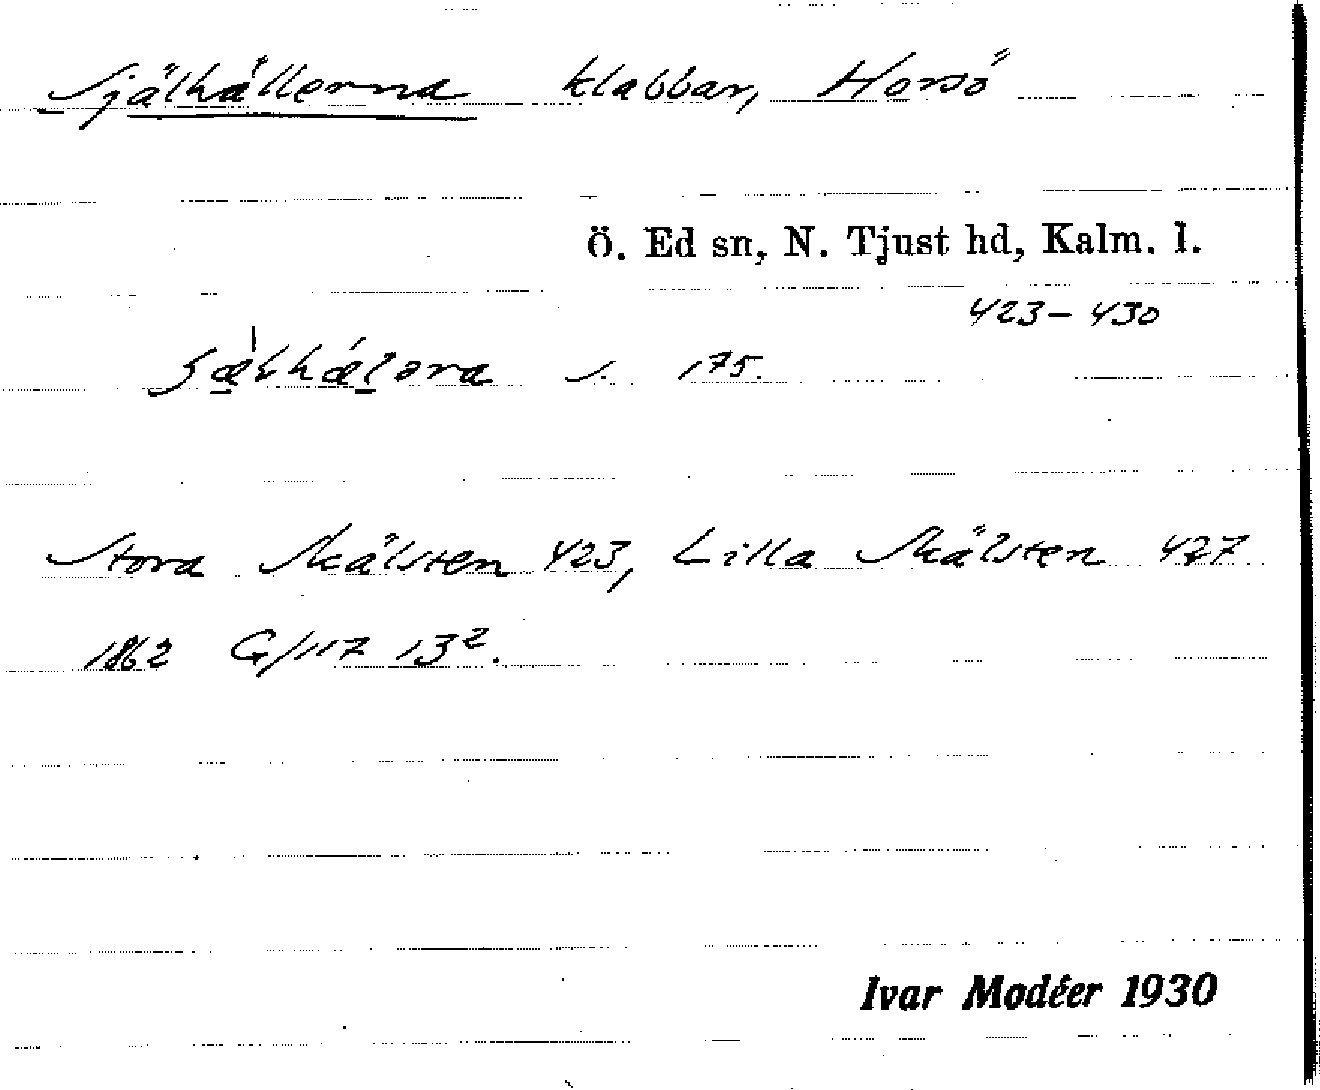 Själhällerna klabbar, Horsö
Ö. Ed sn, N. Tjust hd, Kalm. l.
423–430
s. 175.
Stora Skälsten 423, Lilla Skälsten 427
1862 G/117 13².
Ivar Modéer 1930